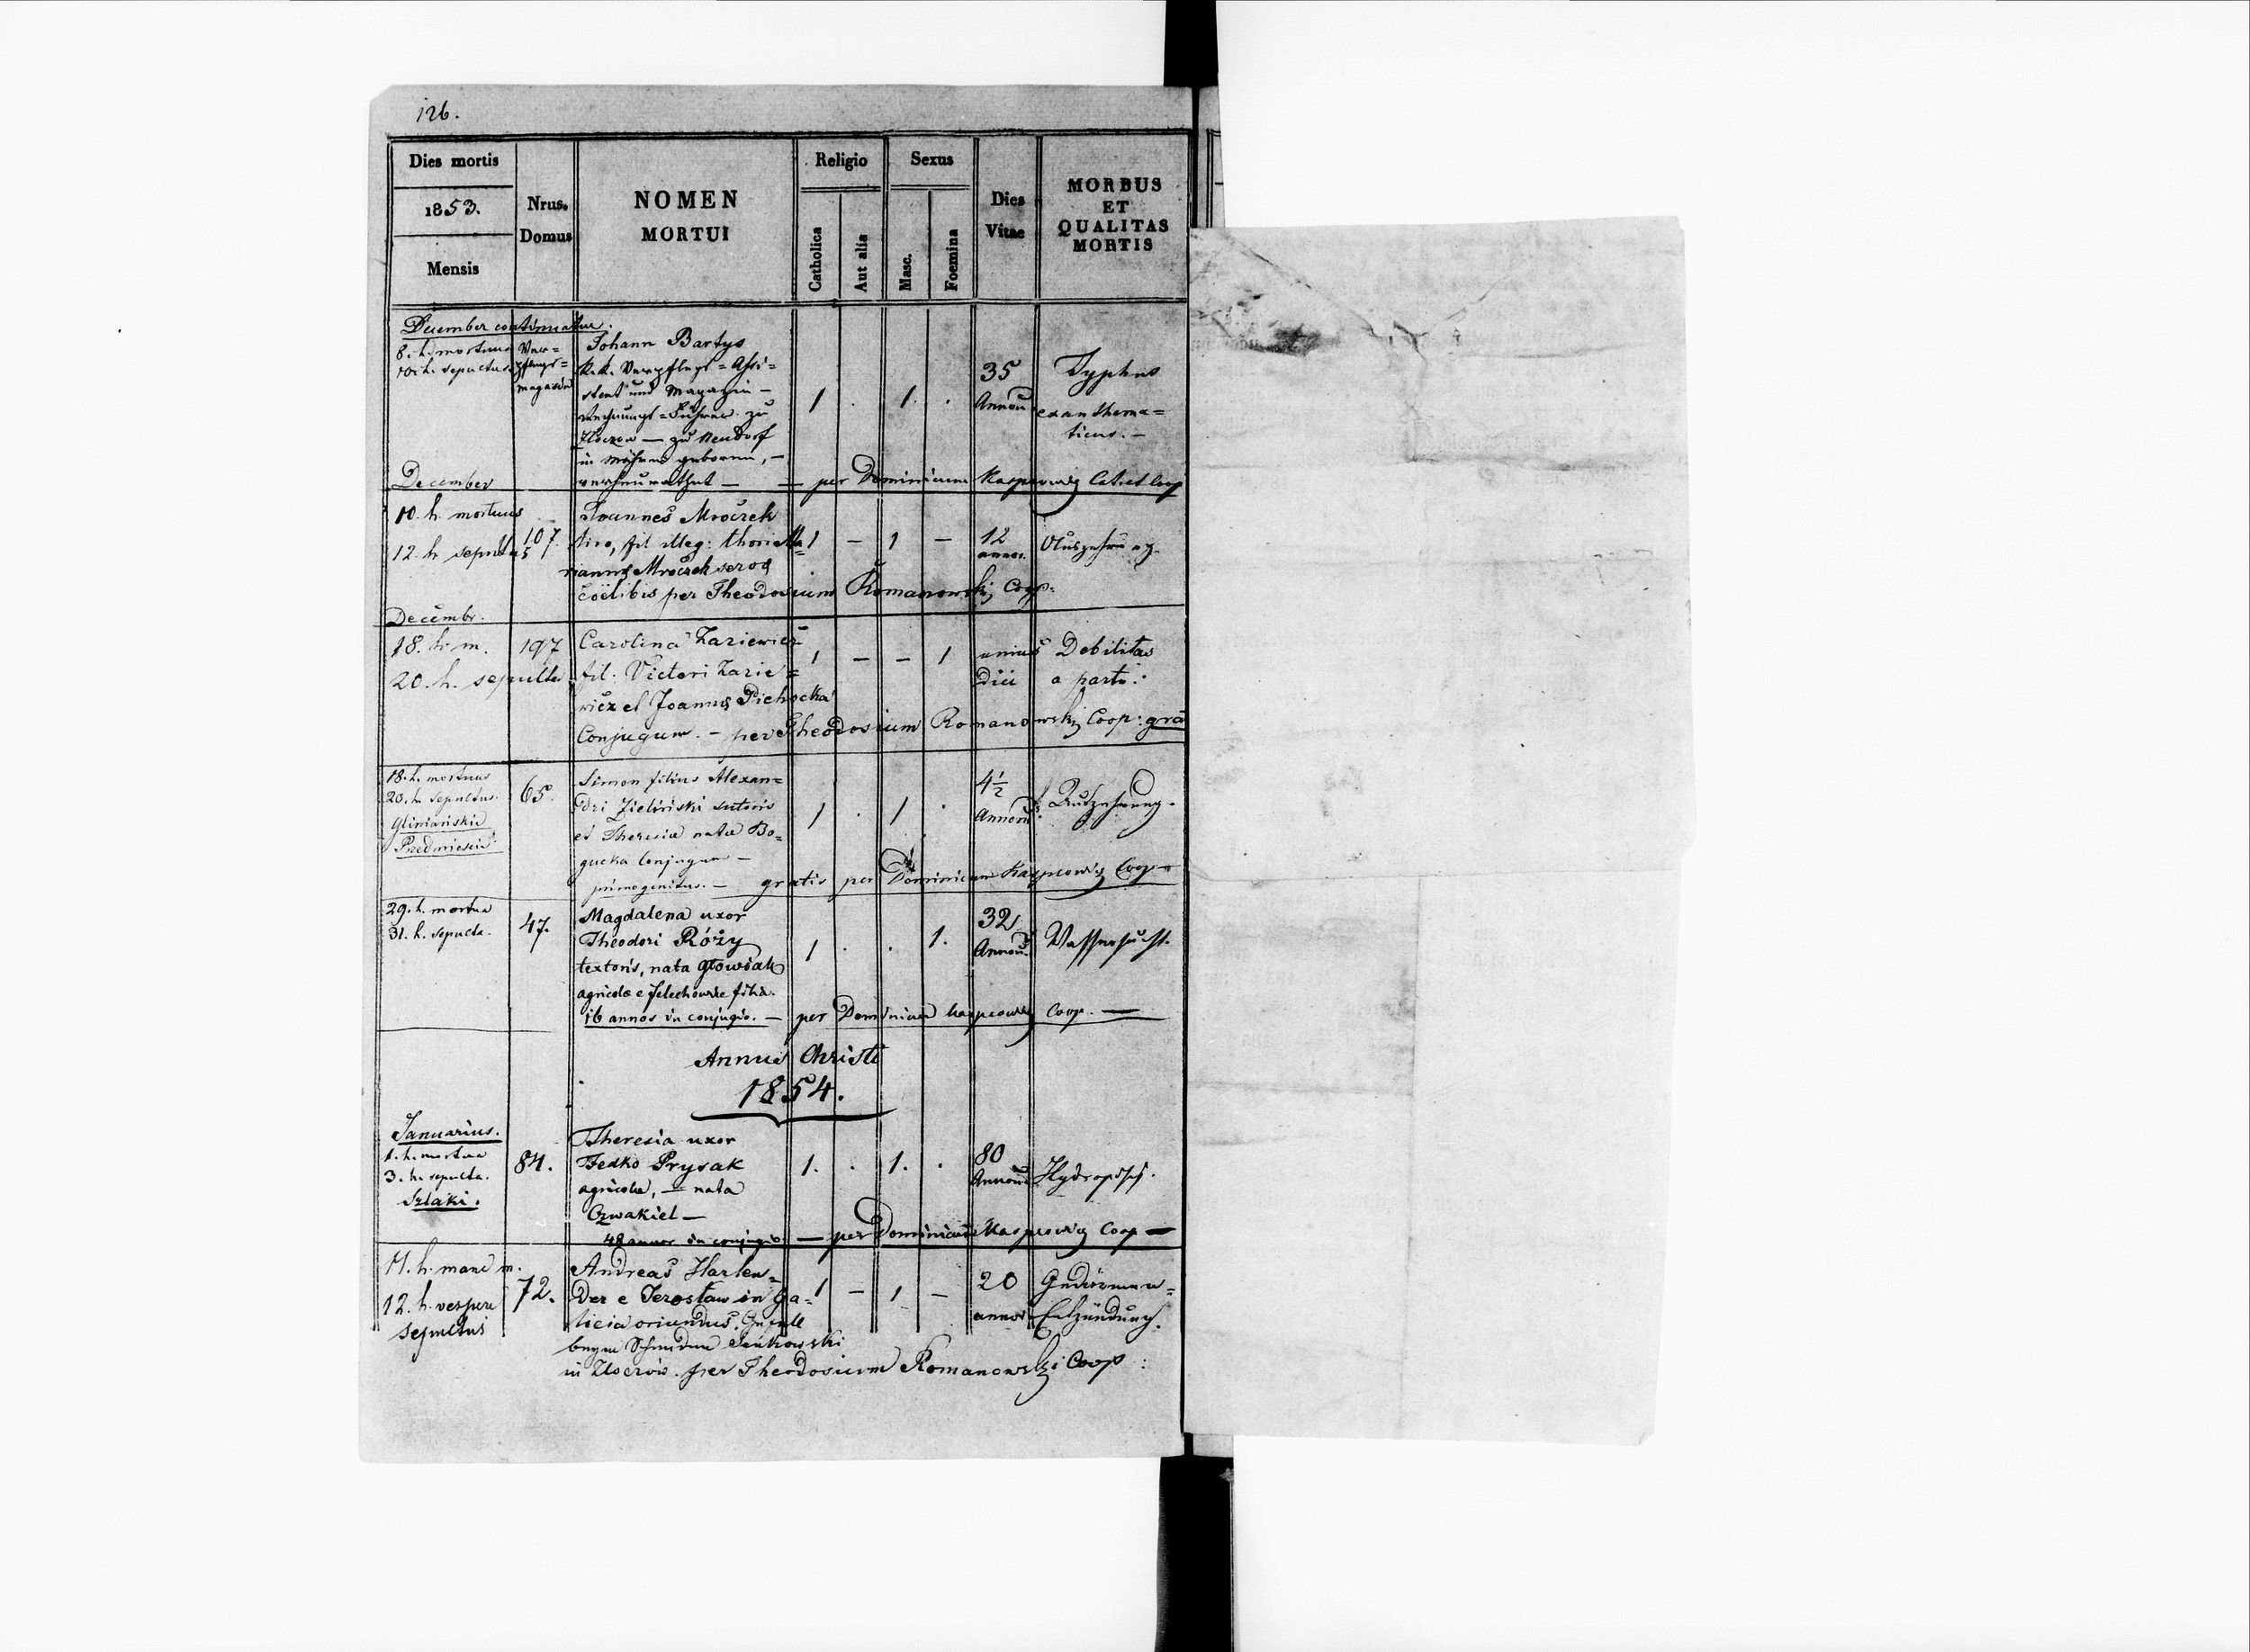 126.
Dies mortis
1853.
Mensis
Nrus.
Domus
NOMEN
MORTUI
Religio
Catholica
Aut alia
Sexus
Masc.
Foemina
Dies
Vitae
MORBUS
ET
QUALITAS
MORTIS
December continuatur.
8. h. mortuus
10. h. sepultus.
Ver=
pflegs=
magazin
Johann Bartys
k.k. Verpflegs=Assi=
stent und Magazin-
Rechnungs=Führer zu
Zloczow — zu Neudorf
in Mähren geboren, —
verheurathet — — per Dominicum Kasprowicz Cat. et Coop
1 . 1. .
35
Annorū
Typhus
exanthema=
ticus. —
December
10. h. mortuus
12. h. sepultus
107.
Joannes Mroczek
tiro, fil illeg: thori Ma=
riannae Mroczek servae
coelibis per Theodosium Romanowski Coop.
1 — 1 —
12
annor.
Auszehrung.
Decembr.
18. h. m.
20. h. sepulta
197
Carolina Zariewicz
fil: Victori Zarie=
wicz et Joannae Pichocka
Conjugum. — per Theodosium Romanowski Coop: gra
1 — — 1
unius
diei
Debilitas
a partu.
18. h. mortuus
20. h. sepultus.
Gliniańskie
Przedmieście
65.
Simon filius Alexan=
dri Zieliński sutoris
et Theresiae natae Bo=
gucka Conjugum —
primogenitus. — gratis per Dominicum Kasprowicz Coop
1 . 1 .
4½
Annorū
Auszehrung.
29. h. mortua
31. h. sepulta.
47.
Magdalena uxor
Theodori Róży
textoris, nata Głowiak
agricolae e Jelechowice filia.
16 annos in conjugio. — per Dominicū Kasprowicz Coop. —
1 . . 1.
32
Annorū.
Wassersucht.
Annus Christi
1854.
Januarius.
1. h. mortua
3. h. sepulta.
Szlaki.
84.
Theresia uxor
Fedko Prysak
agricolae, — nata
Czwakiel —
48 annos in conjugio — per Dominicū Kasprowicz Coop —
1. . 1. .
80
Annorū
Hydropisis.
11. h. mane m.
12. h. vespere
sepultus
72.
Andreas Harlen=
der e Jerosław in Ga=
licia oriundus. Gesell
beym Schneider Senkowski
in Złoczów. per Theodosium Romanowski Coop:
1 — 1 —
20
annor
Gedärmen=
Entzündung.